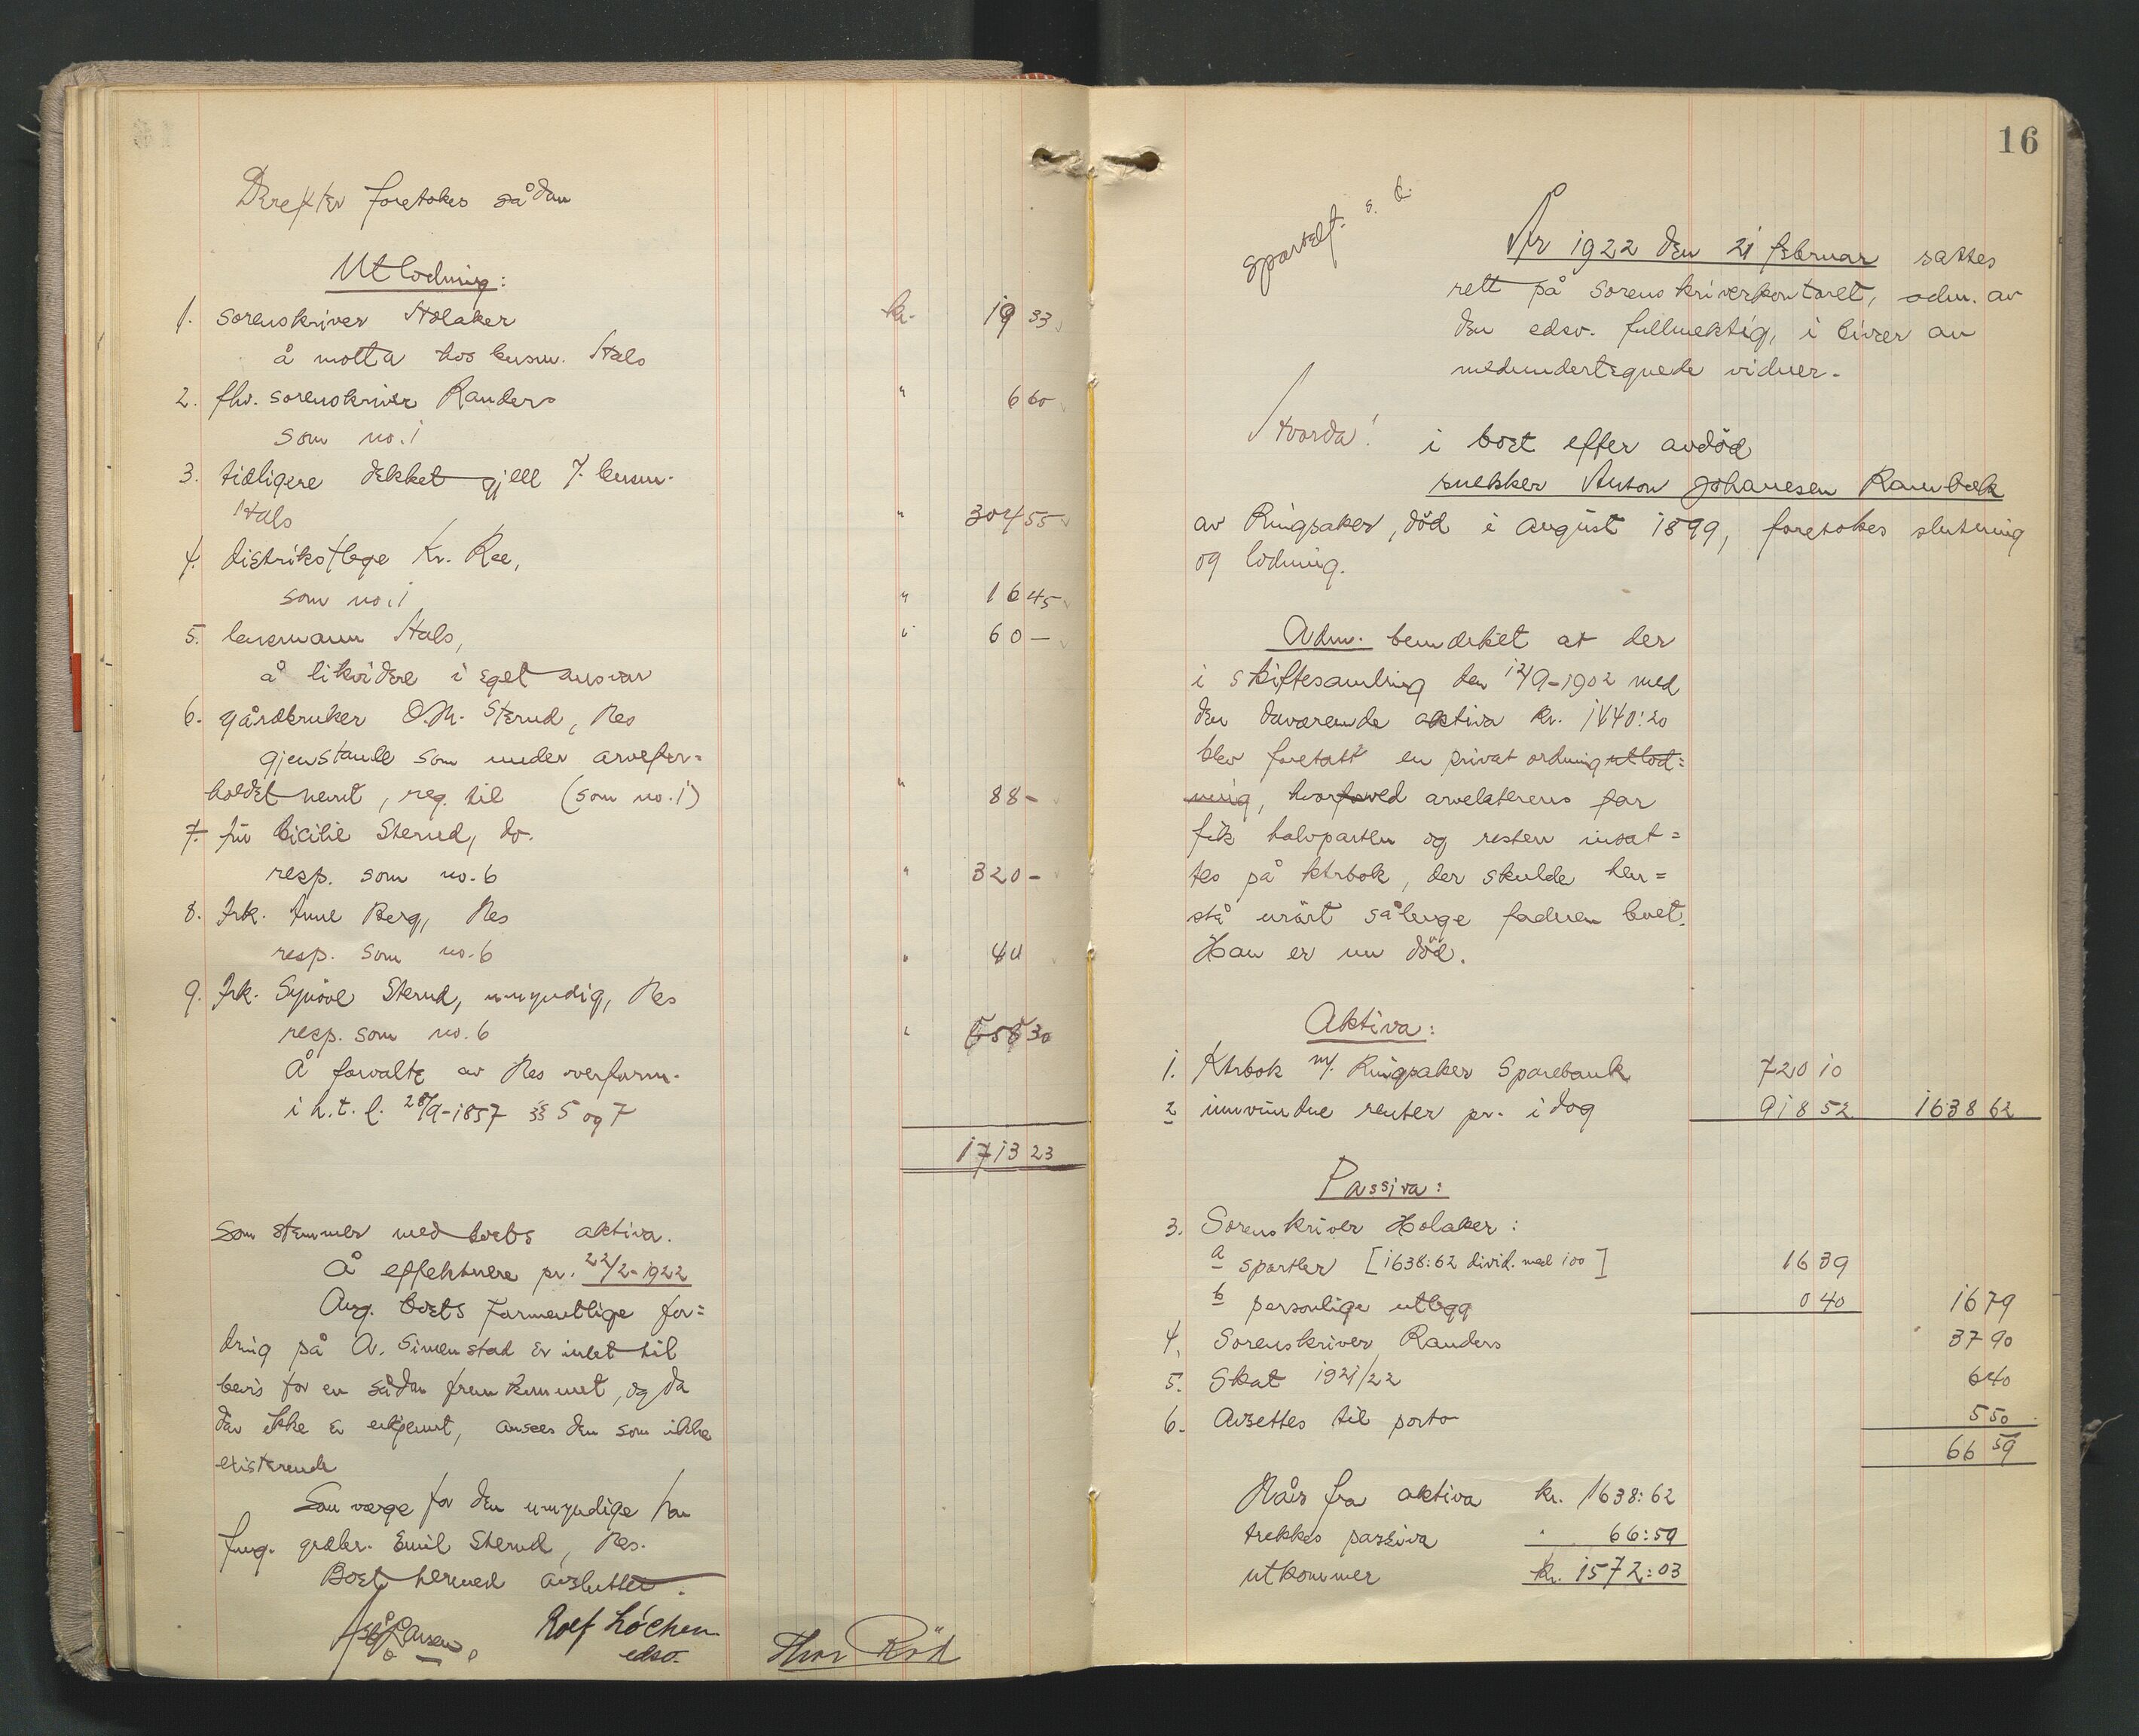 Derefter foretokes sådan
Utlodning:
1. sorenskriver Holaker kr. 19 33
å motta hos lensm. Hals
2. fhv. sorenskriver Randers " 6 60
som no. 1
3. tidligere dekket gjell f. lensm.
Hals " 304 55
4. distriktslege Kr. Ree,
som no. 1 " 16 45
5. lensmann Hals, " 60 —
å likvidere i eget ansvar
6. gårdbruker O.M. Sterud, Nes
gjenstande som under arvefor=
holdet nevnt, reg. til (som no. 1) " 88 -
7. fru Cicilie Sterud, do.
resp. som no. 6 " 320 -
8. frk. Anne Berg, Nes
resp. som no. 6 " 40
9. Frk. Synöve Sterud, umyndig, Nes
resp. som no. 6 " 858 30
Å forvalte av Nes overform.
i h. t. l. 28/9-1857 §§ 5 og 7
1713 23
som stemmer med boets aktiva.
Å effektuere pr. 22/2-1922
Ang. boets formentlige for=
dring på A. Simenstad er intet til
bevis for en sådan fremkommet, og da
den ikke er erkjennt, ansees den som ikke
existerende
Som verge for den umyndige
fung. grdbr. Emil Sterud, Nes.
Boet hermed avsluttet.
Rolf Löchen
edsv.
Thor Röd
16
sportelf. s. d.
År 1922 den 21 februar sattes
rett på sorenskriverkontoret, adm. av
den edsv. fullmektig, i civer av
medundertegnede vidner.
Hvorda! i boet efter avdöd
snekker Anton Johanesen Rambæk
av Ringsaker, död i august 1899, foretokes slutning
og lodning.
Adm. bemerket at der
i skiftesamling den 12/9-1902 med
den daværende aktiva kr. 1440:20
blev foretatt en privat ordning utlod=
ning, hvorved arvelaterens far
fik halvparten og resten insat=
tes på ktrbok, der skulde hen=
stå urört sålenge faderen levet.
Han er nu död.
Aktiva:
1. Ktrbok m/. Ringsaker Sparebank 720 10
2 innvundne renter pr. i dag 918 52 1638 62
Passiva:
3. Sorenskriver Holaker:
a sportler [1638:62 divid. med 100] 16 39
b personlige utlegg 0 40 16 79
4. Sorenskriver Randers 37 90
5. Skat 1921/22 6 40
6. Avsettes til porto 5 50
66 59
Når fra aktiva kr. 1638:62
trekkes passiva " 66:59
utkommer kr. 1572:03